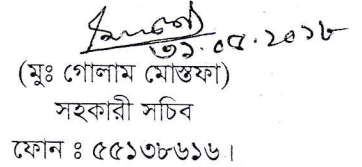 ৩১.০৫.২০১৮
(মুঃ গোলাম মোস্তফা)
সহকারী সচিব
ফোন ঃ ৫৫১৩৮৬১৬।